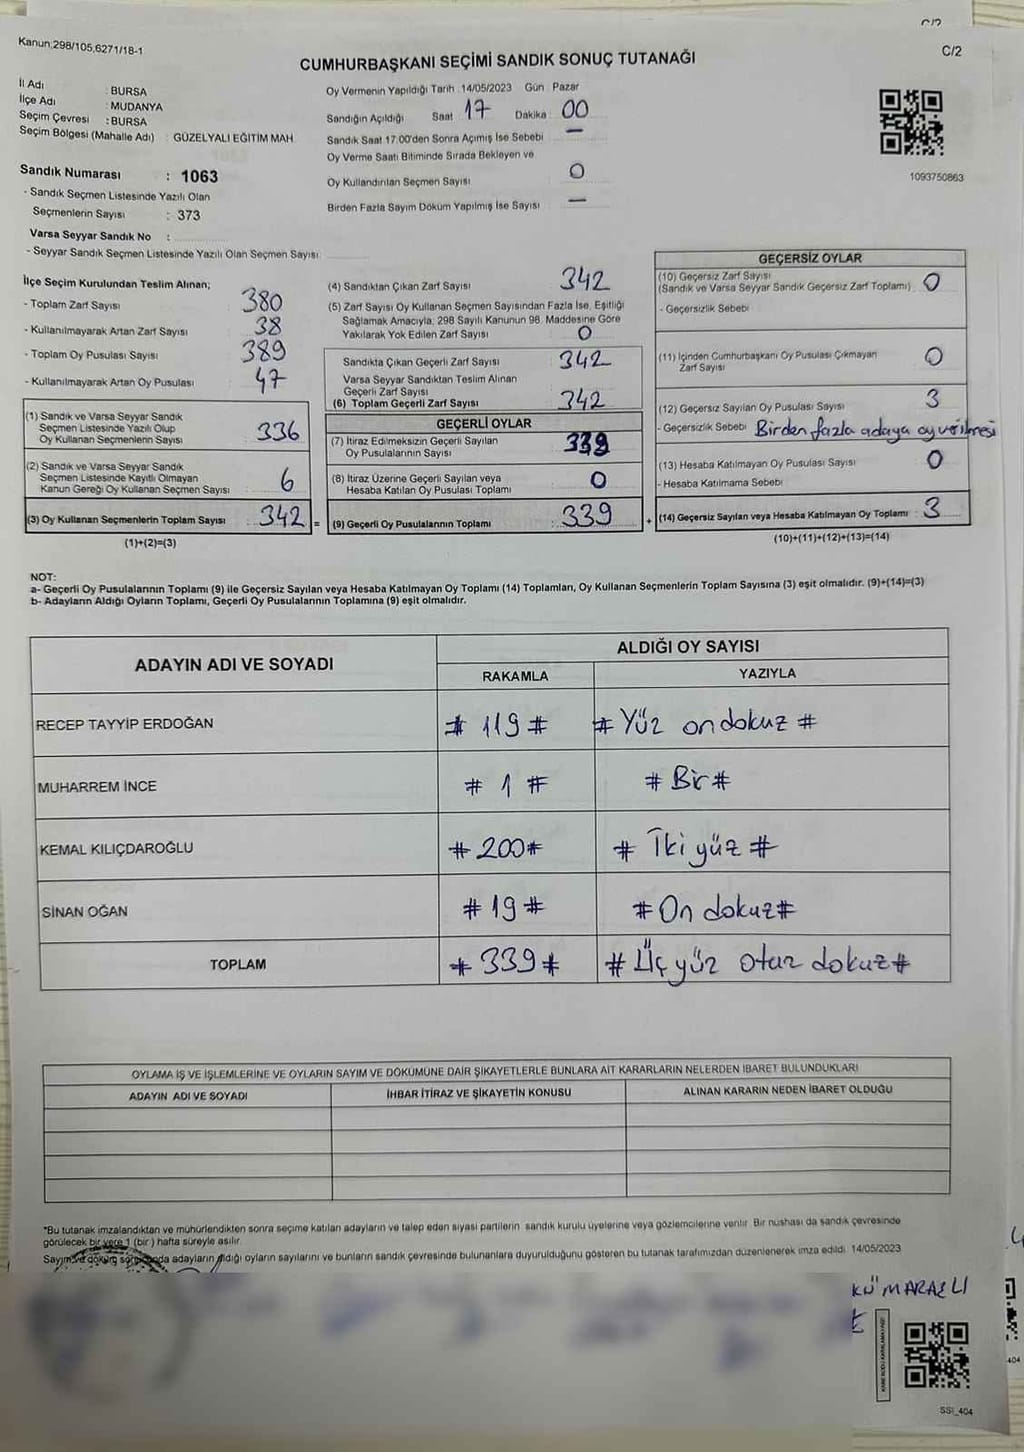 C/2
Kanun:298/105,6271/18-1
CUMHURBAŞKANI SEÇİMİ SANDIK SONUÇ TUTANAĞI
C/2
İl Adı : BURSA
İlçe Adı : MUDANYA
Seçim Çevresi : BURSA
Seçim Bölgesi (Mahalle Adı) : GÜZELYALI EĞİTİM MAH.
Sandık Numarası : 1063
- Sandık Seçmen Listesinde Yazılı Olan
Seçmenlerin Sayısı : 373
Varsa Seyyar Sandık No :
- Seyyar Sandık Seçmen Listesinde Yazılı Olan Seçmen Sayısı
Oy Vermenin Yapıldığı Tarih : 14/05/2023 Gün : Pazar
Sandığın Açıldığı Saat 17 Dakika 00
Sandık Saat 17:00'den Sonra Açımış İse Sebebi —
Oy Verme Saati Bitiminde Sırada Bekleyen ve
Oy Kullandırılan Seçmen Sayısı 0
Birden Fazla Sayım Döküm Yapılmış İse Sayısı —
1093750863
İlçe Seçim Kurulundan Teslim Alınan;
- Toplam Zarf Sayısı 380
- Kullanılmayarak Artan Zarf Sayısı 38
- Toplam Oy Pusulası Sayısı 389
- Kullanılmayarak Artan Oy Pusulası 47
(1) Sandık ve Varsa Seyyar Sandık
Seçmen Listesinde Yazılı Olup
Oy Kullanan Seçmenlerin Sayısı 336
(2) Sandık ve Varsa Seyyar Sandık
Seçmen Listesinde Kayıtlı Olmayan
Kanun Gereği Oy Kullanan Seçmen Sayısı 6
(3) Oy Kullanan Seçmenlerin Toplam Sayısı 342 =
(1)+(2)=(3)
(4) Sandıktan Çıkan Zarf Sayısı 342
(5) Zarf Sayısı Oy Kullanan Seçmen Sayısından Fazla İse, Eşitliği
Sağlamak Amacıyla, 298 Sayılı Kanunun 98. Maddesine Göre
Yakılarak Yok Edilen Zarf Sayısı 0
Sandıkta Çıkan Geçerli Zarf Sayısı 342
Varsa Seyyar Sandıktan Teslim Alınan
Geçerli Zarf Sayısı
(6) Toplam Geçerli Zarf Sayısı 342
GEÇERLİ OYLAR
(7) İtiraz Edilmeksizin Geçerli Sayılan
Oy Pusulalarının Sayısı 339
(8) İtiraz Üzerine Geçerli Sayılan veya
Hesaba Katılan Oy Pusulası Toplamı 0
(9) Geçerli Oy Pusulalarının Toplamı : 339 +
GEÇERSİZ OYLAR
(10) Geçersiz Zarf Sayısı
(Sandık ve Varsa Seyyar Sandık Geçersiz Zarf Toplamı) 0
- Geçersizlik Sebebi
(11) İçinden Cumhurbaşkanı Oy Pusulası Çıkmayan
Zarf Sayısı 0
(12) Geçersiz Sayılan Oy Pusulası Sayısı 3
- Geçersizlik Sebebi Birden fazla adaya oy verilmesi
(13) Hesaba Katılmayan Oy Pusulası Sayısı 0
- Hesaba Katılmama Sebebi
(14) Geçersiz Sayılan veya Hesaba Katılmayan Oy Toplamı : 3
(10)+(11)+(12)+(13)=(14)
NOT:
a- Geçerli Oy Pusulalarının Toplamı (9) ile Geçersiz Sayılan veya Hesaba Katılmayan Oy Toplamı (14) Toplamları, Oy Kullanan Seçmenlerin Toplam Sayısına (3) eşit olmalıdır. (9)+(14)=(3)
b- Adayların Aldığı Oyların Toplamı, Geçerli Oy Pusulalarının Toplamına (9) eşit olmalıdır.
ADAYIN ADI VE SOYADI
ALDIĞI OY SAYISI
RAKAMLA YAZIYLA
RECEP TAYYİP ERDOĞAN # 119 # # Yüz on dokuz #
MUHARREM İNCE # 1 # # Bir #
KEMAL KILIÇDAROĞLU # 200 # # İki yüz #
SİNAN OĞAN # 19 # # On dokuz #
TOPLAM # 339 # # Üç yüz otuz dokuz #
OYLAMA İŞ VE İŞLEMLERİNE VE OYLARIN SAYIM VE DÖKÜMÜNE DAİR ŞİKAYETLERLE BUNLARA AİT KARARLARIN NELERDEN İBARET BULUNDUKLARI
ADAYIN ADI VE SOYADI İHBAR İTİRAZ VE ŞİKAYETİN KONUSU ALINAN KARARIN NEDEN İBARET OLDUĞU
*Bu tutanak imzalandıktan ve mühürlendikten sonra seçime katılan adayların ve talep eden siyasi partilerin sandık kurulu üyelerine veya gözlemcilerine verilir. Bir nüshası da sandık çevresinde
görülecek bir yere 1 (bir) hafta süreyle asılır.
Sayım ve döküm sonunda adayların aldığı oyların sayılarını ve bunların sandık çevresinde bulunanlara duyurulduğunu gösteren bu tutanak tarafımızdan düzenlenerek imza edildi. 14/05/2023
SSI_404
404